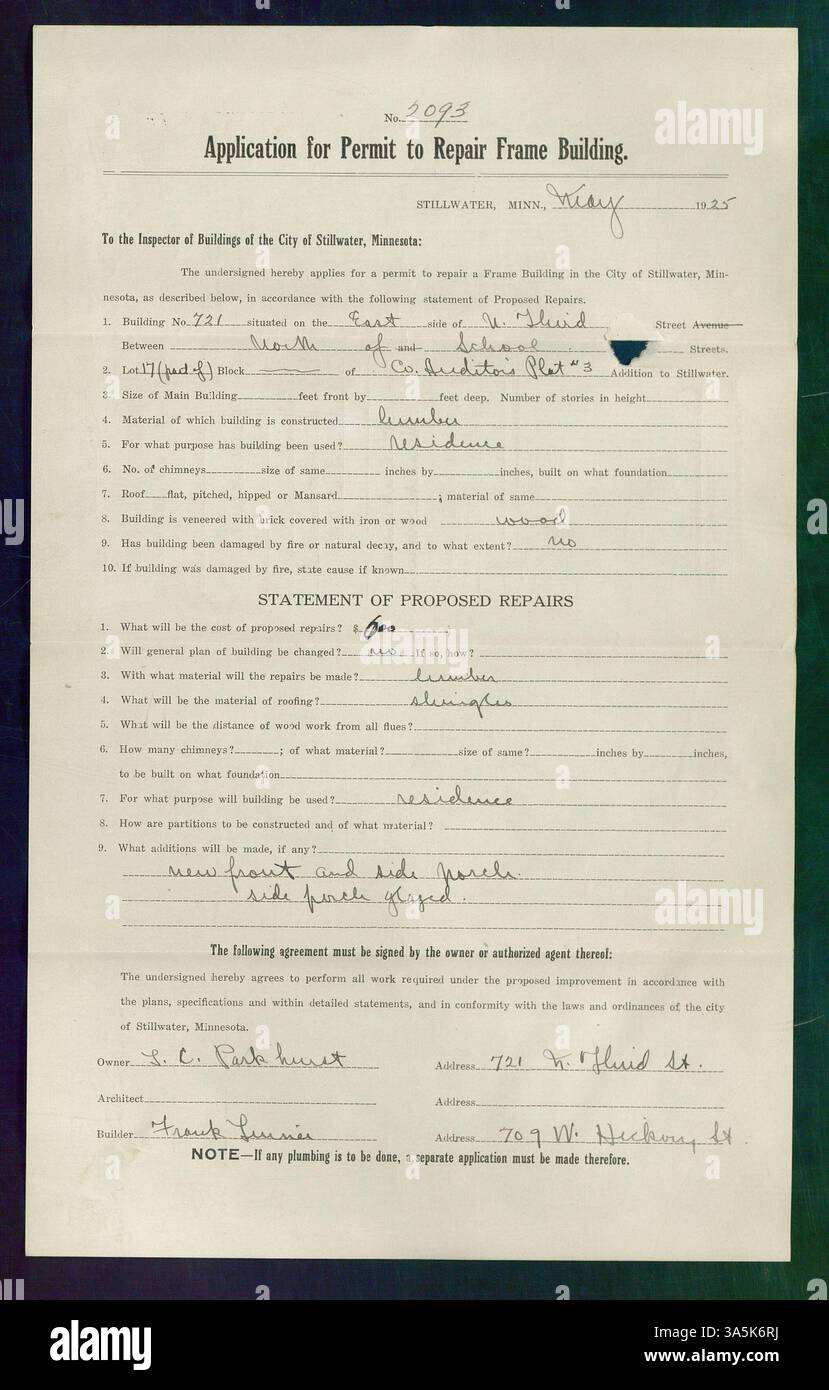 No. 5093
Application for Permit to Repair Frame Building.
STILLWATER, MINN., May 1925
To the Inspector of Buildings of the City of Stillwater, Minnesota:
The undersigned hereby applies for a permit to repair a Frame Building in the City of Stillwater, Min-
nesota, as described below, in accordance with the following statement of Proposed Repairs.
1. Building No. 721 situated on the East side of N. Third Street Avenue
Between North of and School Streets.
2. Lot 17 (part of) Block of Co. Auditor's Plat #3 Addition to Stillwater.
3. Size of Main Building feet front by feet deep. Number of stories in height
4. Material of which building is constructed lumber
5. For what purpose has building been used? residence
6. No. of chimneys size of same inches by inches, built on what foundation
7. Roof flat, pitched, hipped or Mansard ; material of same
8. Building is veneered with brick covered with iron or wood wood
9. Has building been damaged by fire or natural decay, and to what extent? no
10. If building was damaged by fire, state cause if known
STATEMENT OF PROPOSED REPAIRS
1. What will be the cost of proposed repairs? $ 600
2. Will general plan of building be changed? no If so, how?
3. With what material will the repairs be made? lumber
4. What will be the material of roofing? shingles
5. What will be the distance of wood work from all flues?
6. How many chimneys? ; of what material? size of same? inches by inches,
to be built on what foundation
7. For what purpose will building be used? residence
8. How are partitions to be constructed and of what material?
9. What additions will be made, if any?
new front and side porch.
side porch glazed.
The following agreement must be signed by the owner or authorized agent thereof:
The undersigned hereby agrees to perform all work required under the proposed improvement in accordance with
the plans, specifications and within detailed statements, and in conformity with the laws and ordinances of the city
of Stillwater, Minnesota.
Owner C. Parkhurst Address 721 N. Third St.
Architect Address
Builder Frank Address 709 W. Hickory St.
NOTE—If any plumbing is to be done, a separate application must be made therefore.
alamy
Image ID: 3A5K6RJ
www.alamy.com